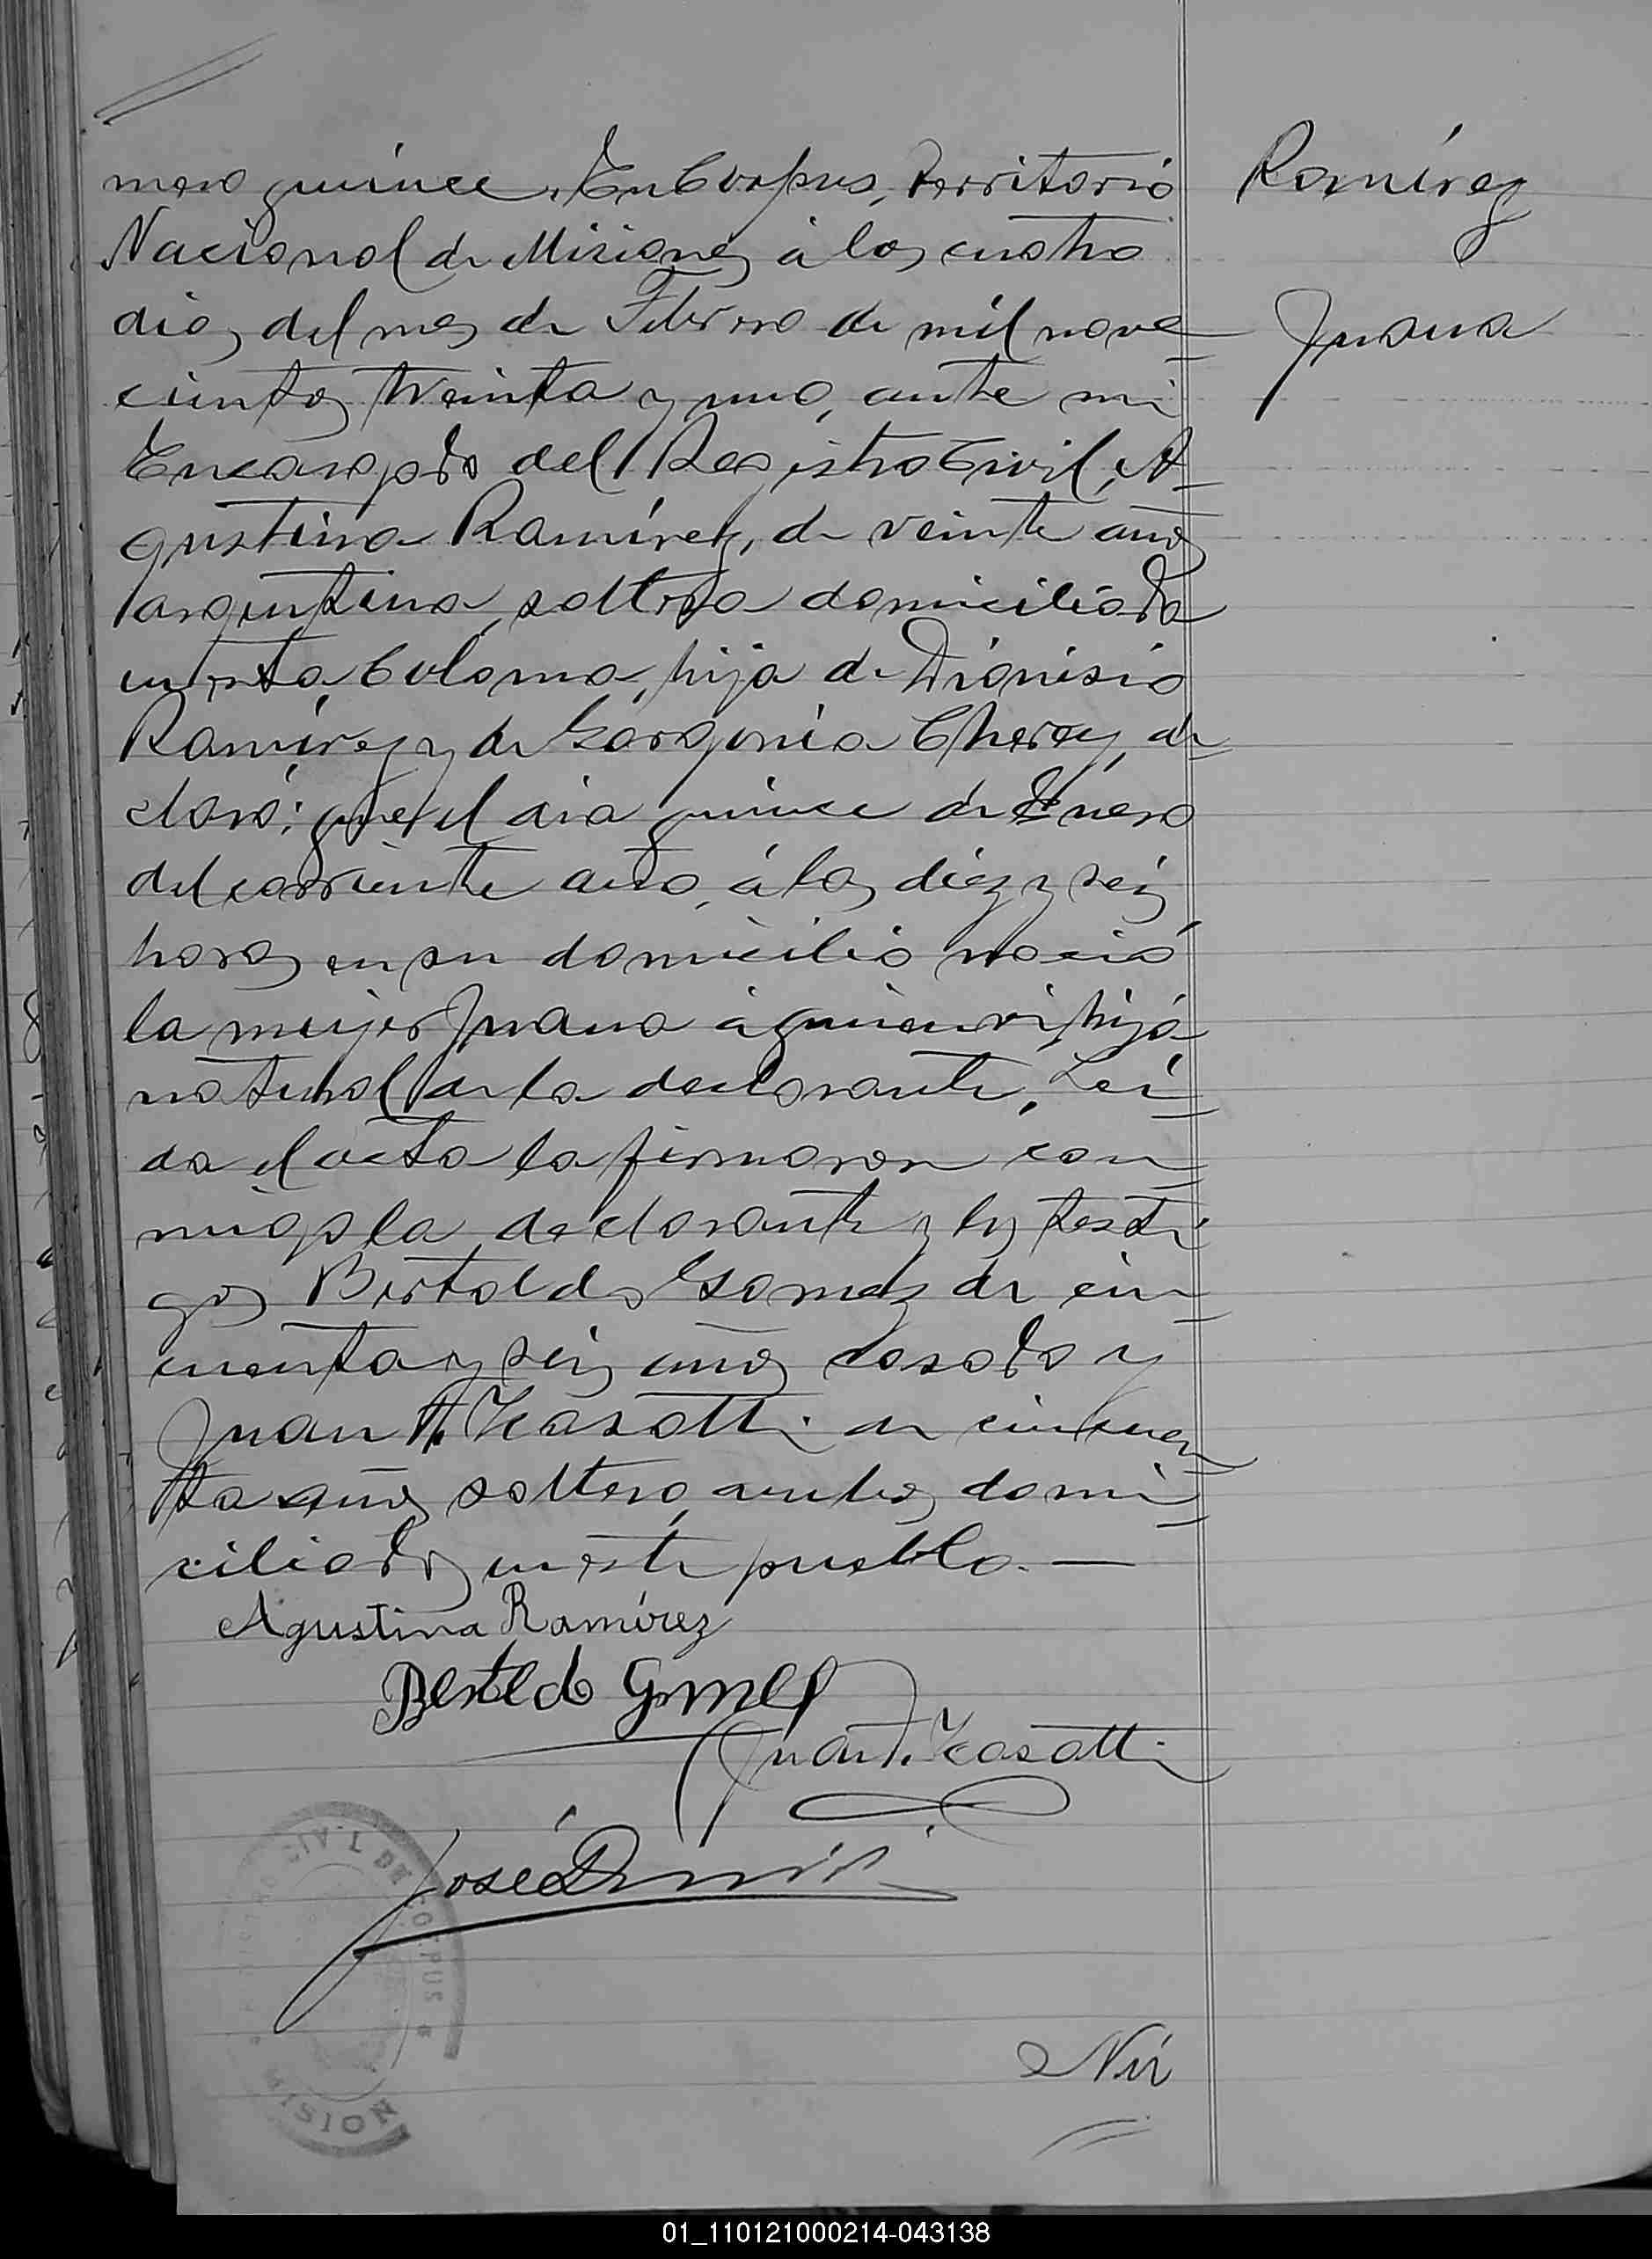 mero quince. En Corpus, Territorio
Nacional de Misiones á los cuatro
dias del mes de Febrero de mil nove
cientos treinta y uno, ante mi
Encargado del Registro Civil, A
gustina Ramírez, de veinte años
argentina, soltera domiciliada
en esta Colonia, hija de Dionisio
Ramírez y de Gorgonia Cherey, de
claró: que el dia quince de Enero
del corriente año, á las diez y seis
horas en su domicilio nació
la mujer Juana á quien vi, hija
natural de la declarante, Leí
da el acta la firmaron con
migo la declarante y los testi
gos Bertoldo Gomez de cin
cuenta y seis años casado y
Juan Casatti de cincuen
ta años soltero, ambos domi
ciliados en este pueblo. —
Ramírez
Juana
Agustina Ramírez
Bertoldo Gomez
Juan Casatti
José
CIVIL DE CORPUS
MISION
Nú
01_110121000214-043138